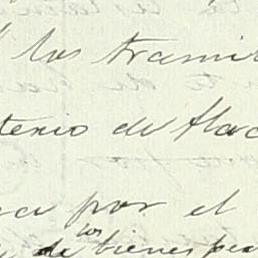 los tramit
terio de Hac
por el
de los bienes per